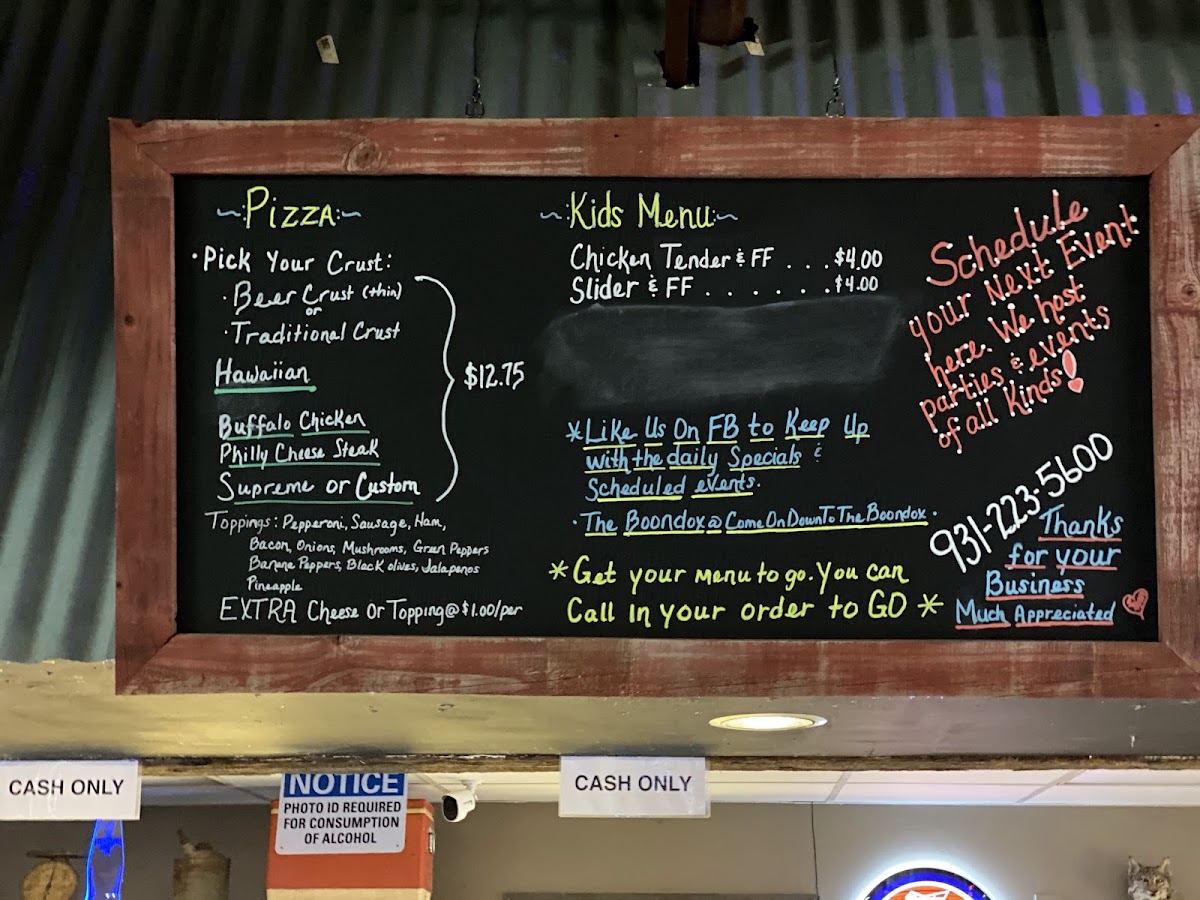 ~:Pizza:~
·Pick Your Crust:
·Beer Crust (thin)
or
·Traditional Crust
Hawaiian
Buffalo Chicken
Philly Cheese Steak
Supreme or Custom
$12.75
Toppings: Pepperoni, Sausage, Ham,
Bacon, Onions, Mushrooms, Green Peppers
Banana Peppers, Black olives, Jalapenos
Pineapple
EXTRA Cheese Or Topping@$1.00/per
~:Kids Menu:~
Chicken Tender & FF . . . $4.00
Slider & FF . . . . . . . $4.00
*Like Us On FB to Keep Up
with the daily Specials &
Scheduled events.
·The Boondox@ComeOnDownToTheBoondox.
*Get your menu to go. You can
Call in your order to GO *
Schedule
your Next Event
here. We host
parties & events
of all Kinds!
931-223-5600
Thanks
for your
Business
Much Appreciated
CASH ONLY
NOTICE
PHOTO ID REQUIRED
FOR CONSUMPTION
OF ALCOHOL
CASH ONLY